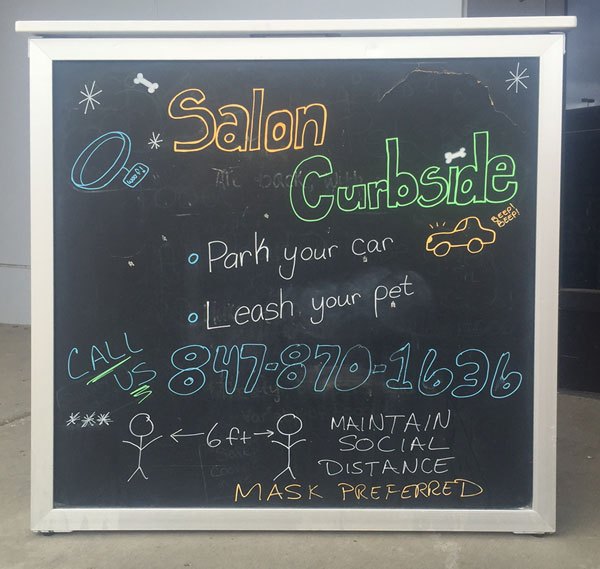 Salon
Curbside
woof!
BEEP!
BEEP!
• Park your car
• Leash your pet
CALL
US
847-870-1636
*** ←6ft→ MAINTAIN
SOCIAL
DISTANCE
MASK PREFERRED